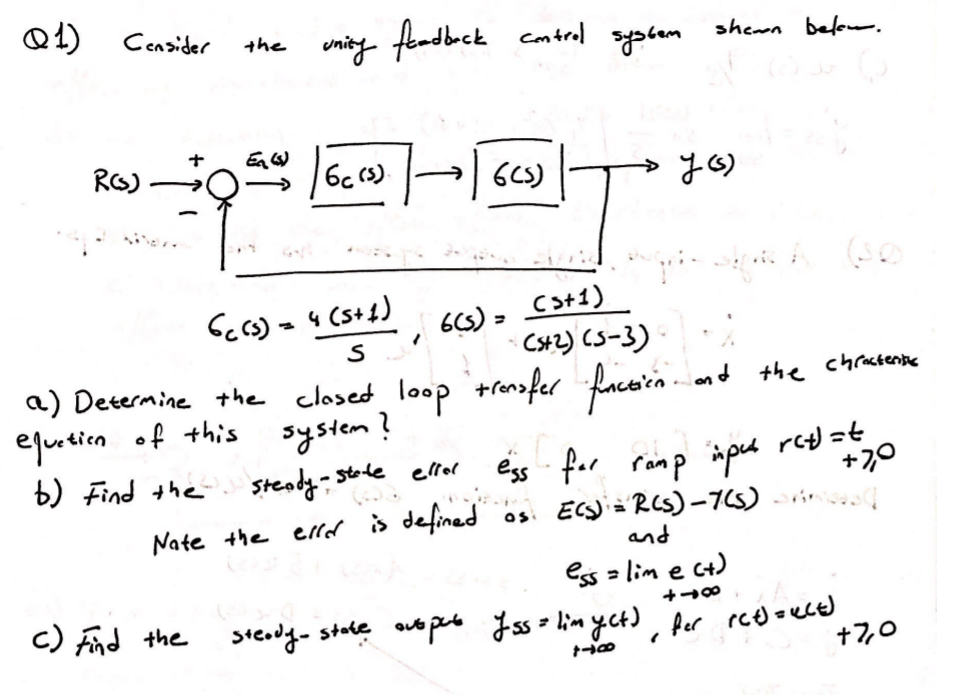 Q1) Consider the unity feedback control system shown below.
R(s) + − Ea(s) Gc(s) G(s) y(s)
Gc(s) = 4(s+1) / s , G(s) = (s+1) / (s+2)(s-3)
a) Determine the closed loop transfer function and the chracteristic
equation of this system?
b) Find the steady-state error ess for ramp input r(t) = t
t≥0
Note the error is defined as: E(s) = R(s) - Y(s)
and
ess = lim e(t)
t→∞
c) Find the steady-state output yss = lim y(t), for r(t) = u(t)
t→∞ t≥0